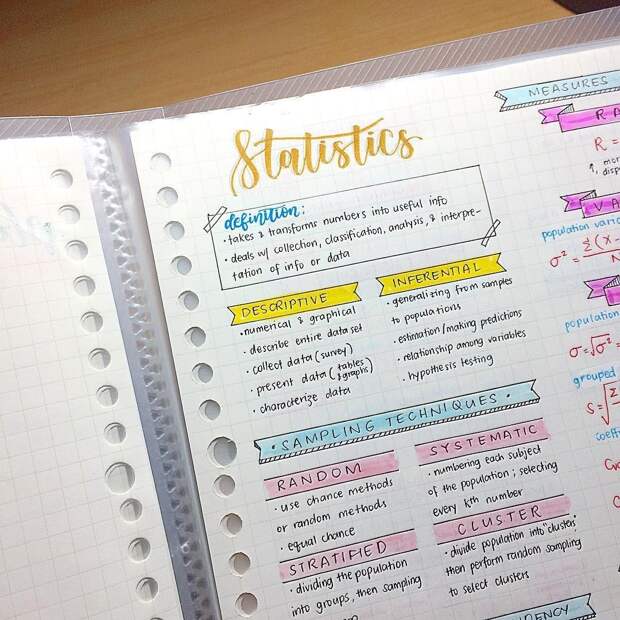 Statistics
definition:
• takes & transforms numbers into useful info
• deals w/ collection, classification, analysis, & interpre-
tation of info or data
DESCRIPTIVE
• numerical & graphical
• describe entire data set
• collect data (survey)
• present data (tables & graphs)
• characterize data
INFERENTIAL
• generalizing from samples
to populations
• estimation/making predictions
• relationship among variables
• hypothesis testing
• SAMPLING TECHNIQUES •
RANDOM
• use chance methods
or random methods
• equal chance
STRATIFIED
• dividing the population
into groups, then sampling
SYSTEMATIC
• numbering each subject
of the population; selecting
every kth number
CLUSTER
• divide population into "clusters"
then perform random sampling
to select clusters
MEASURES
R =
population
σ² =
population
σ = √σ² =
grouped
S =